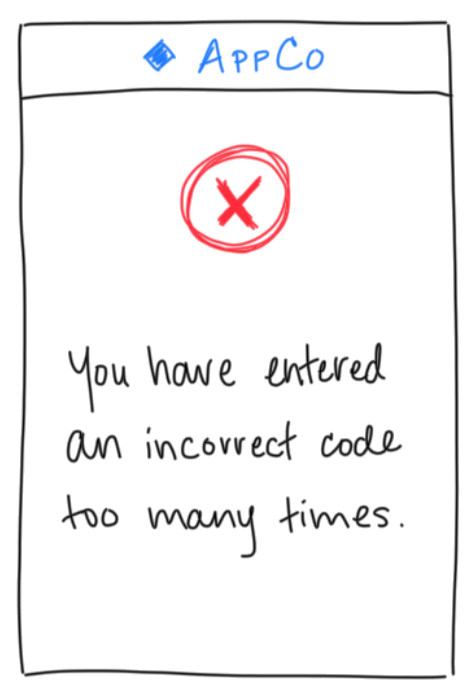 AppCo
You have entered
an incorrect code
too many times.